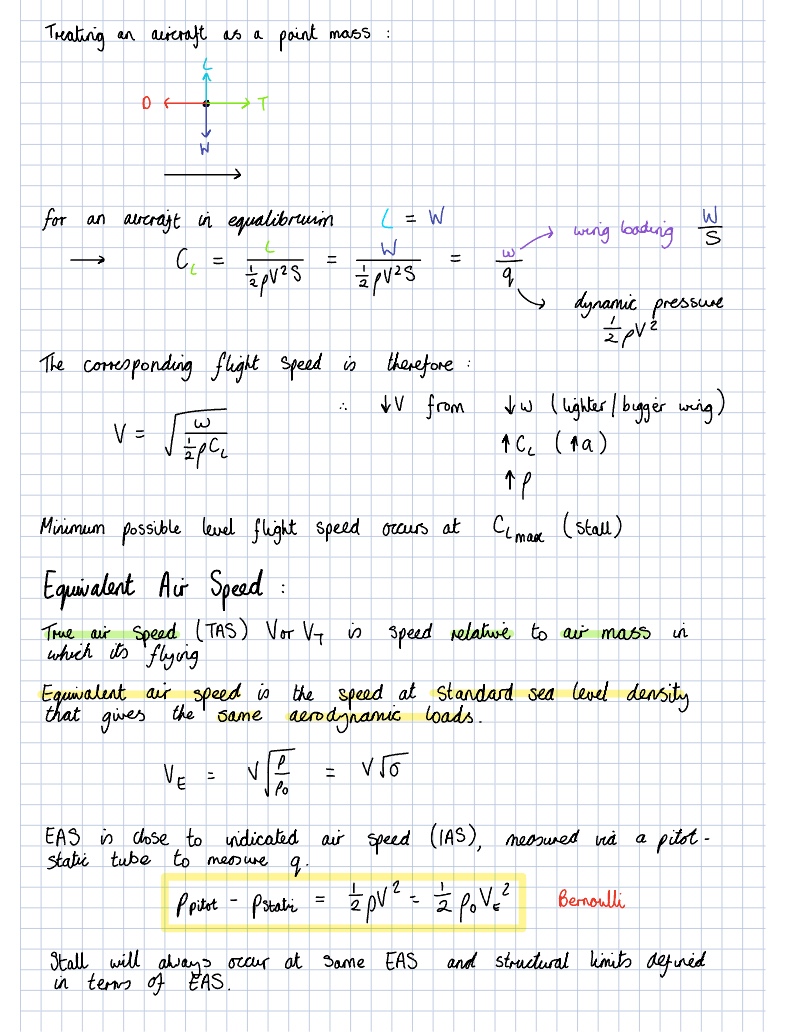 Treating an aircraft as a point mass :
L
D T
W
for an aircraft in equalibrium L = W
→ C_L = L / ½ρV²S = W / ½ρV²S = w / q
wing loading W/S
dynamic pressure
½ρV²
The corresponding flight speed is therefore :
V = √(w / ½ρC_L) ∴ ↓V from ↓w (lighter/bigger wing)
↑C_L (↑a)
↑ρ
Minimum possible level flight speed occurs at C_Lmax (stall)
Equivalent Air Speed :
True air speed (TAS) V or V_T is speed relative to air mass in
which its flying
Equivalent air speed is the speed at standard sea level density
that gives the same aerodynamic loads.
V_E = V√(ρ/ρ₀) = V√σ
EAS is close to indicated air speed (IAS), measured via a pitot-
static tube to measure q.
P_pitot - P_static = ½ρV² = ½ρ₀V_E² Bernoulli
Stall will always occur at same EAS and structural limits defined
in terms of EAS.